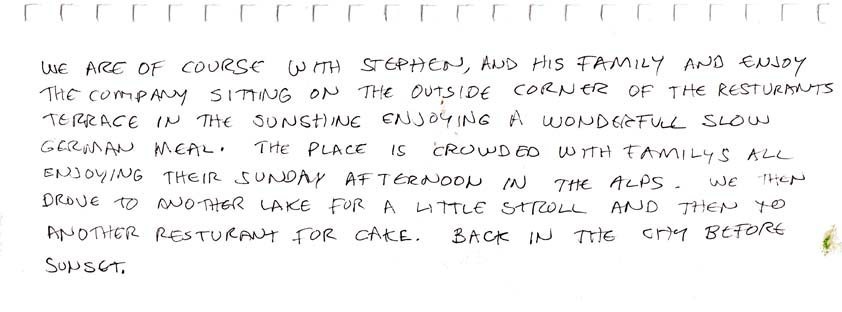 WE ARE OF COURSE WITH STEPHEN, AND HIS FAMILY AND ENJOY
THE COMPANY SITTING ON THE OUTSIDE CORNER OF THE RESTURANTS
TERRACE IN THE SUNSHINE ENJOYING A WONDERFULL SLOW
GERMAN MEAL. THE PLACE IS CROWDED WITH FAMILYS ALL
ENJOYING THEIR SUNDAY AFTERNOON IN THE ALPS. WE THEN
DROVE TO ANOTHER LAKE FOR A LITTLE STROLL AND THEN TO
ANOTHER RESTURANT FOR CAKE. BACK IN THE CITY BEFORE
SUNSET.